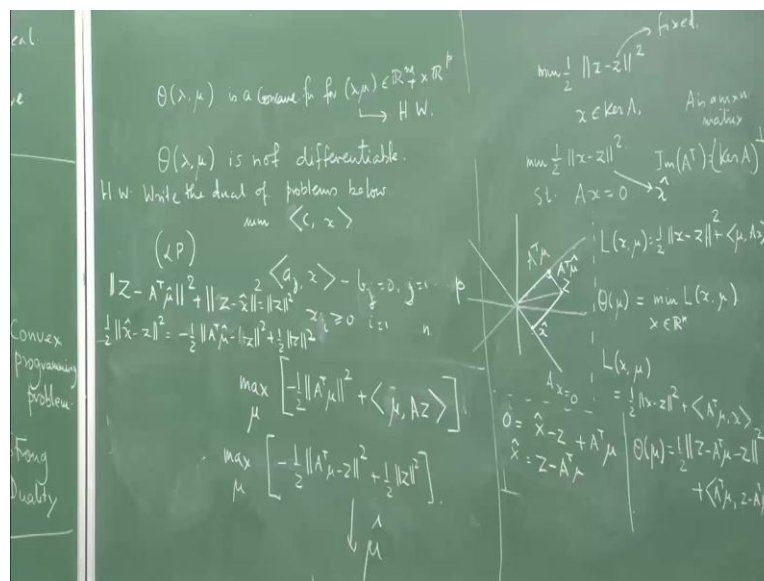 eal
Convex
programming
problem
Duality
Θ(λ,μ) is a concave fn for (λ,μ) ∈ ℝ^m_+ × ℝ^p
↳ H W.
Θ(λ,μ) is not differentiable.
H.W. Write the dual of problems below
min ⟨c, x⟩
(LP)
⟨a_j, x⟩ - b_j = 0, j=1 ... p
x_i ≥ 0 i=1 n
||z - A^T μ̂||² + ||z - x̂||² = ||z||²
½||x̂ - z||² = -½||A^T μ̂ - z||² + ½||z||²
max μ [-½||A^T μ||² + ⟨μ, Az⟩]
max μ [-½||A^T μ - z||² + ½||z||²].
↓ μ̂
fixed.
min ½ ||x - z||²
x ∈ Ker A,
A is an m×n
matrix
min ½ ||x - z||².
Im(A^T) = (Ker A)^⊥
st. Ax = 0
x̂
A^T μ
A^T μ̂
z
x̂
Ax=0
L(x,μ) = ½||x - z||² + ⟨μ, Ax⟩
Θ(μ) = min L(x,μ)
x ∈ ℝ^n
L(x,μ)
= ½||x - z||² + ⟨A^T μ, x⟩
0 = x̂ - z + A^T μ
x̂ = z - A^T μ
Θ(μ) = ½||z - A^T μ - z||²
+ ⟨A^T μ, z - A^T μ